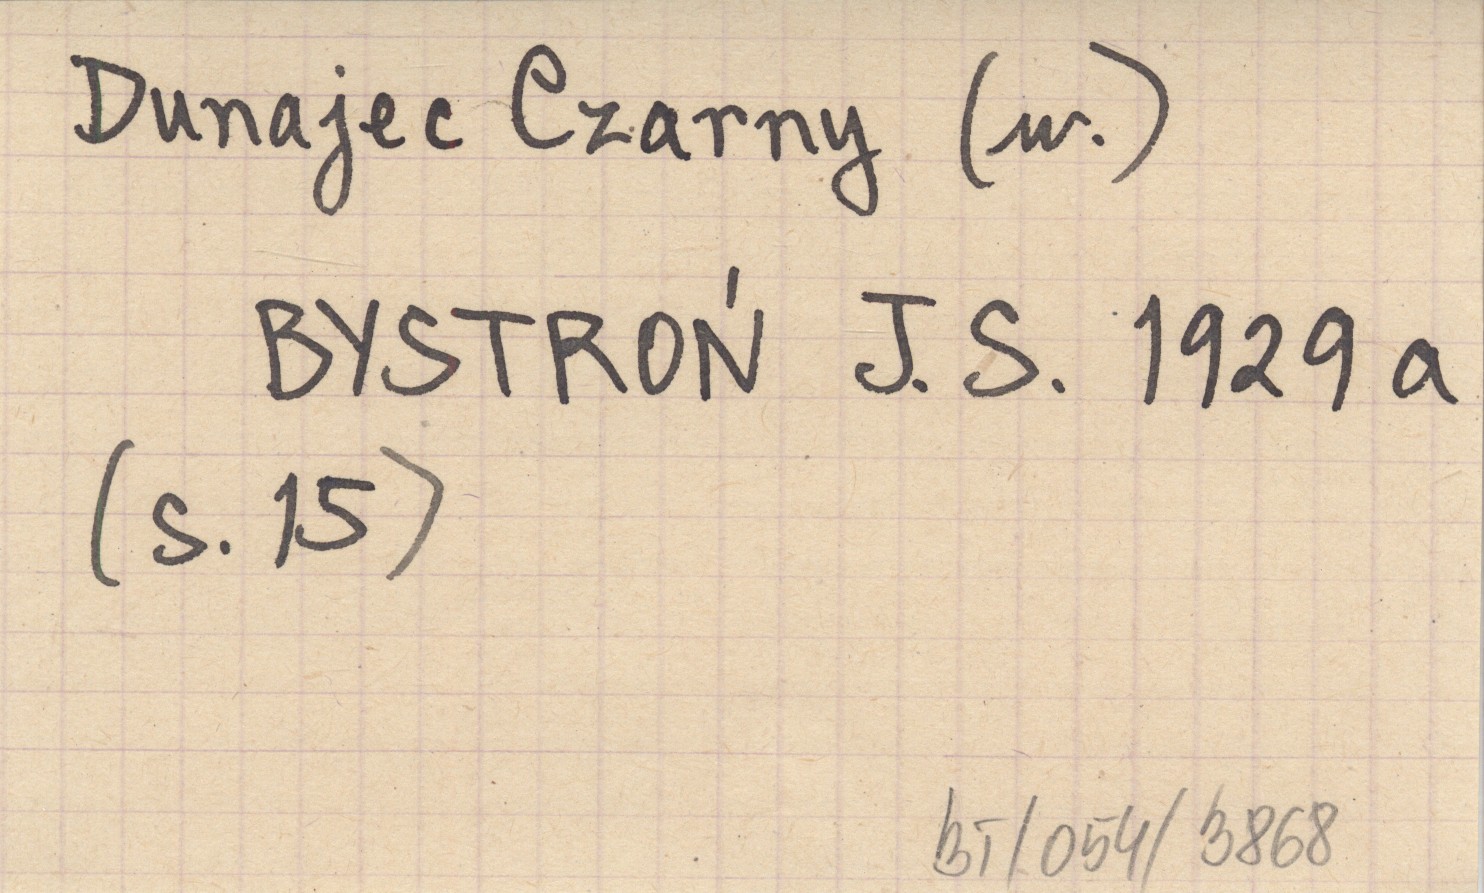 Dunajec Czarny (w.)
BYSTROŃ J.S. 1929 a
(s. 15)
BT/054/3868